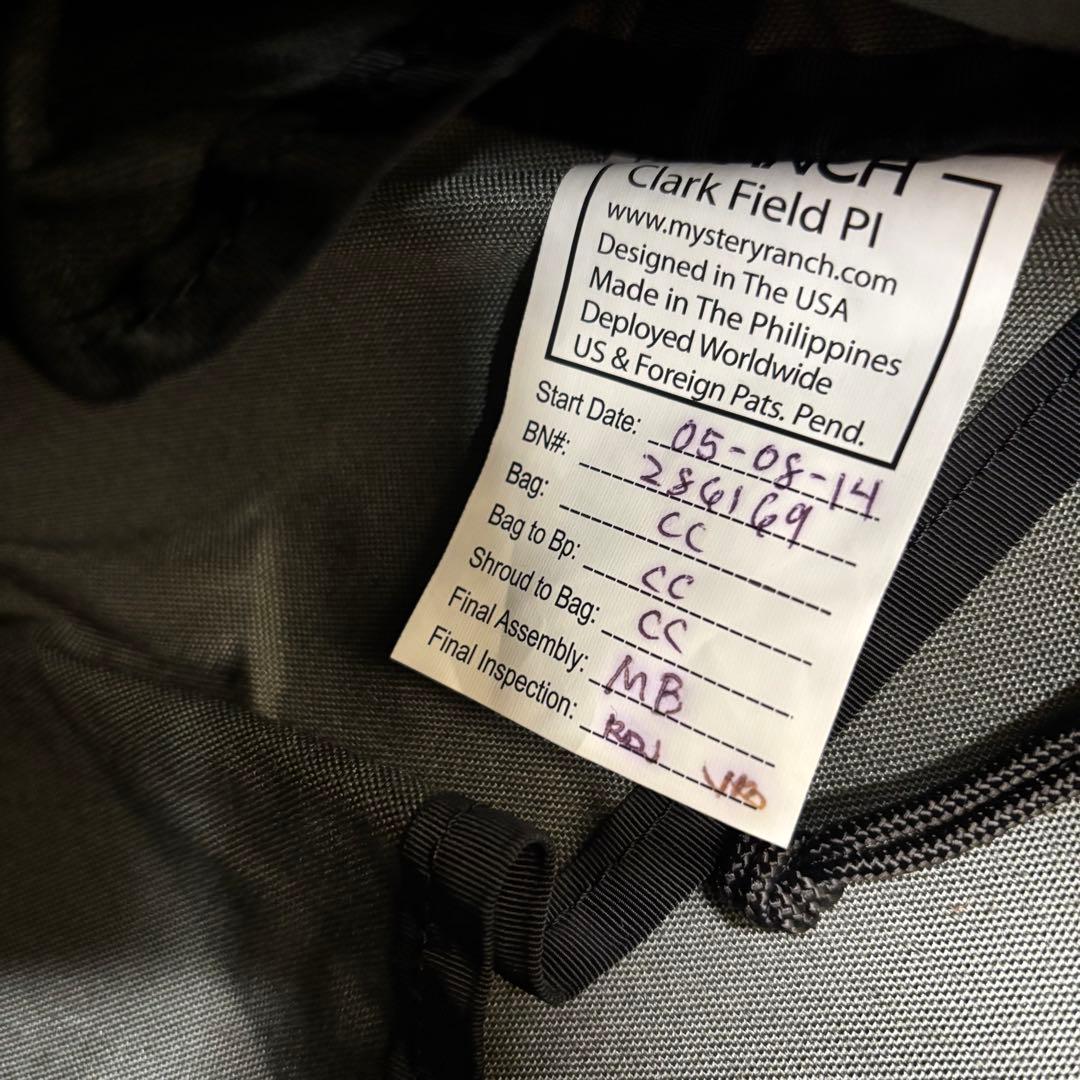 Clark Field PI
www.mysteryranch.com
Designed in The USA
Made in The Philippines
Deployed Worldwide
US & Foreign Pats. Pend.
Start Date: 05-08-14
BN#: 286169
Bag: CC
Bag to Bp: CC
Shroud to Bag: CC
Final Assembly: MB
Final Inspection: